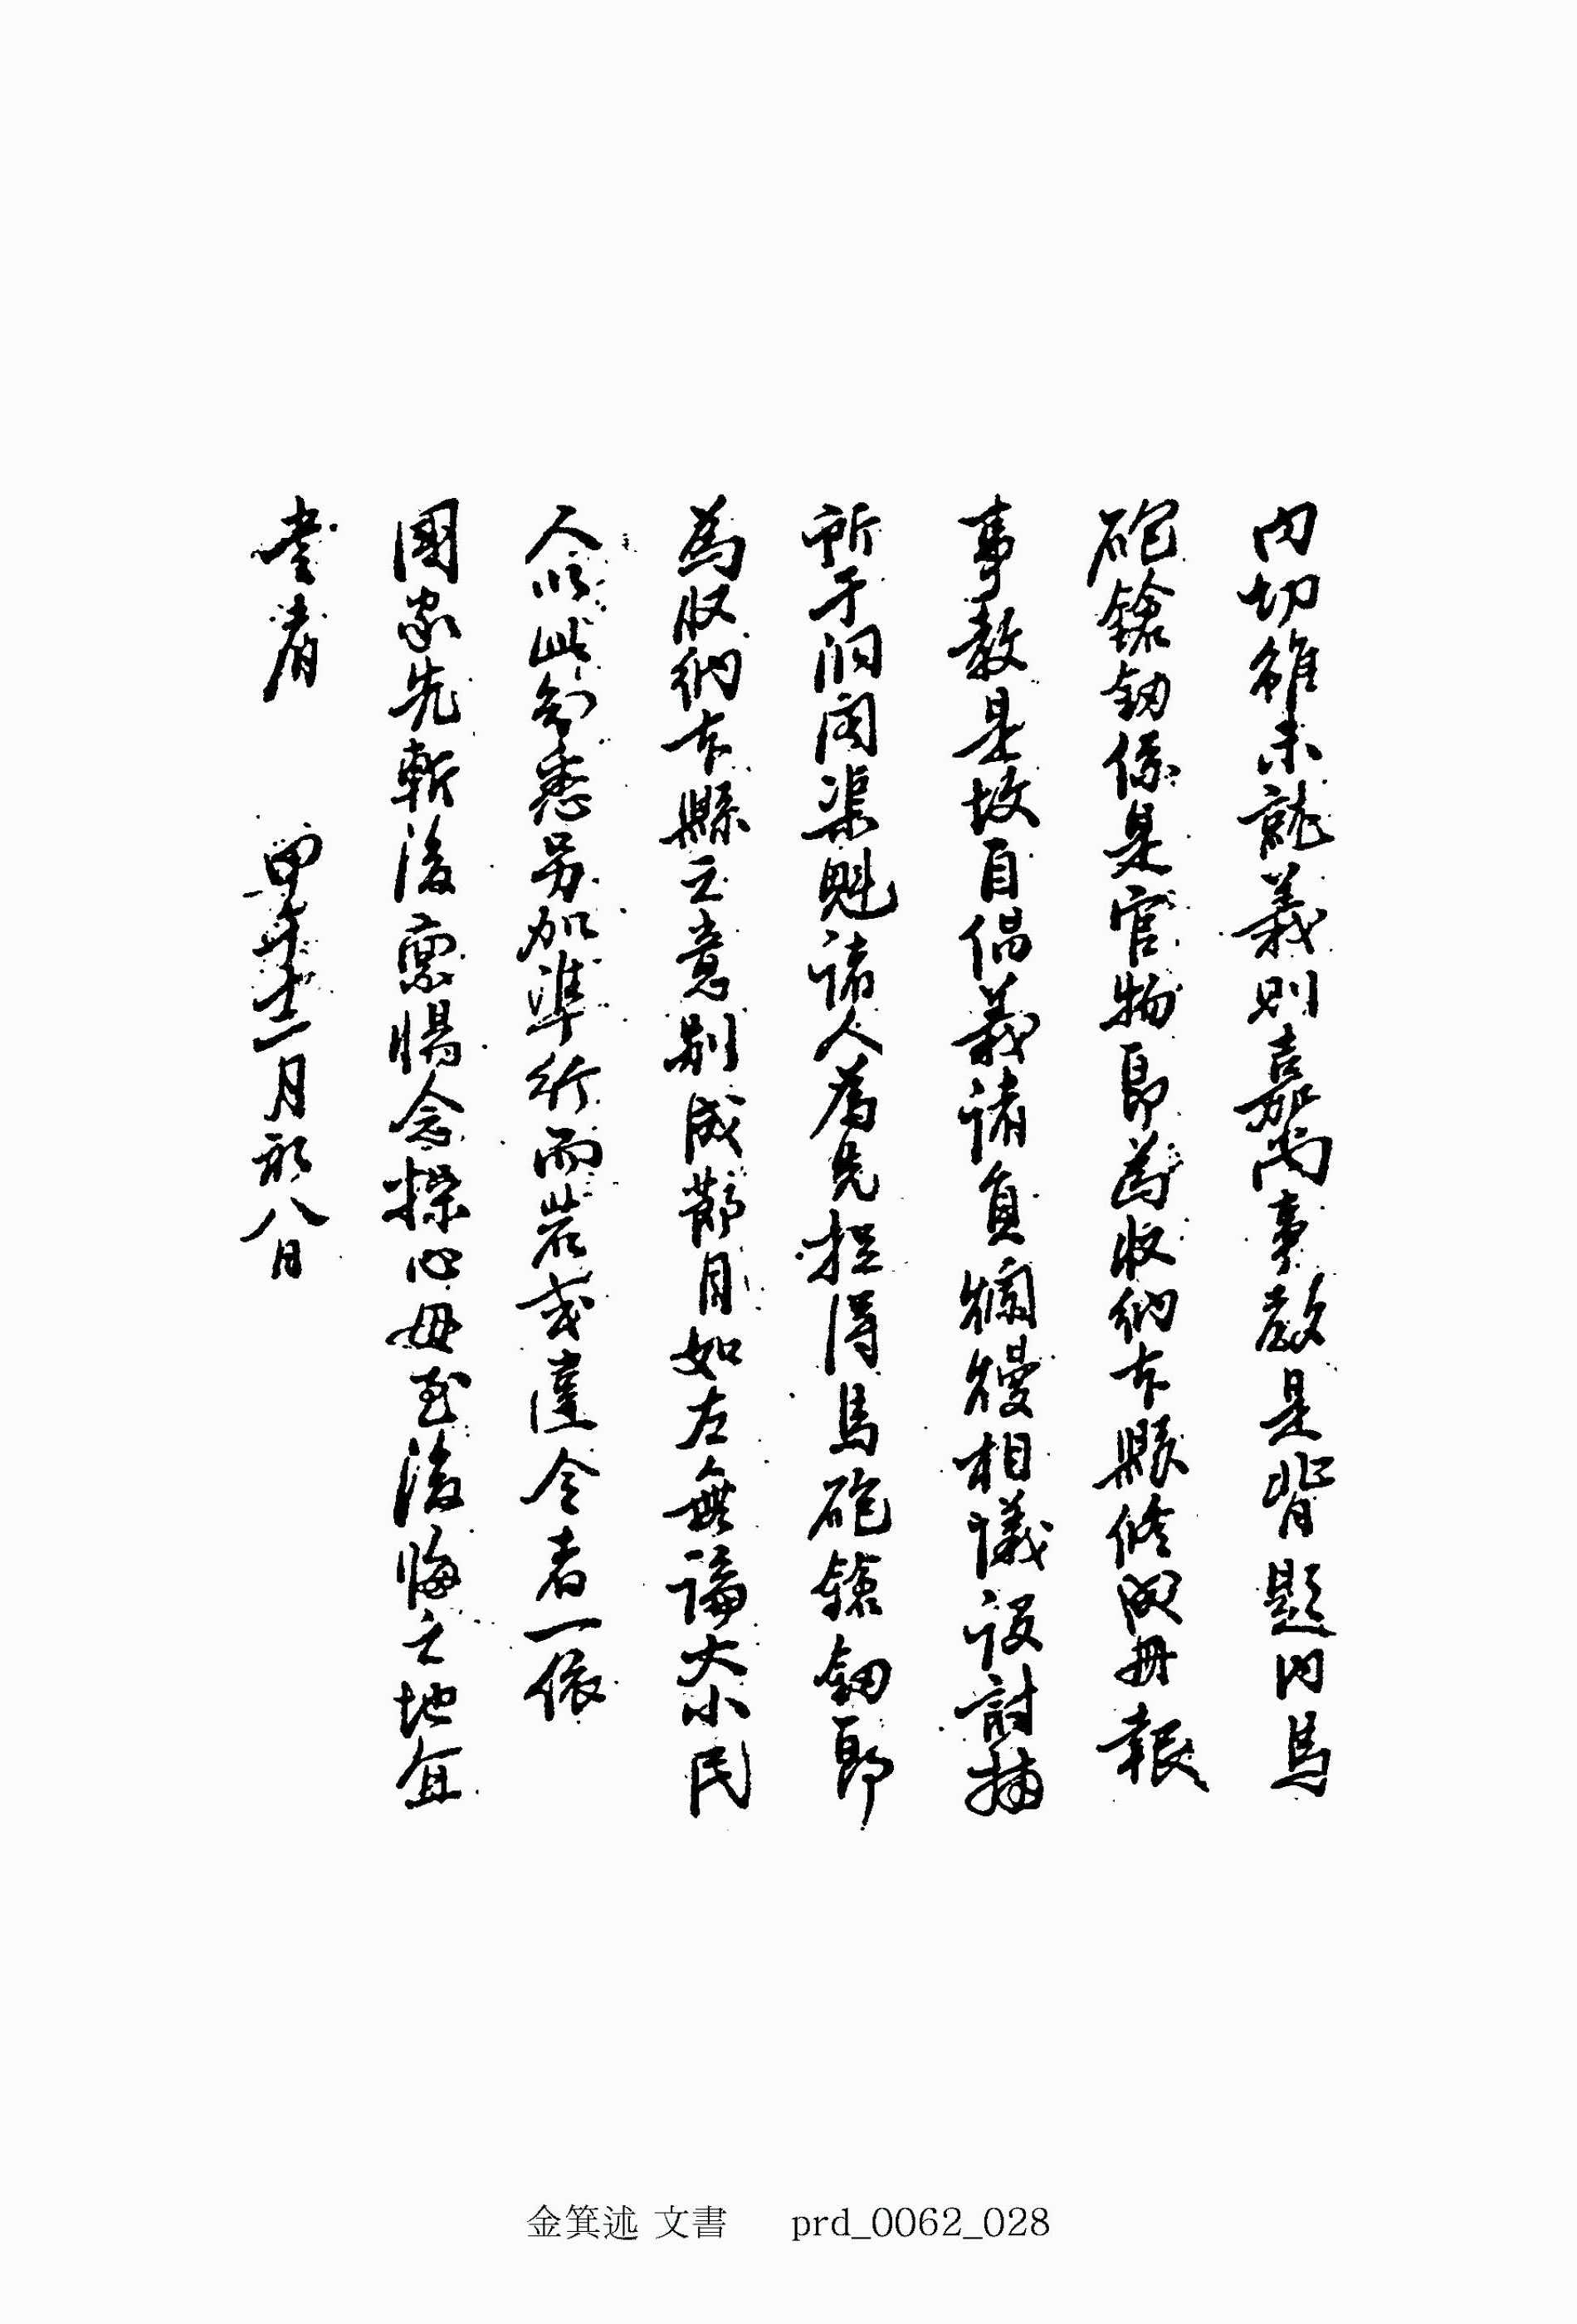 內切雖未就義則嘉尚事敎是背題內馬
砲鎗釰係是官物即爲收納本縣修成册報
事敎是故自倡義諸員爛熳相議設討捕
所于洞內渠魁諸人爲先捉得馬砲鎗釰即
爲收納本縣之意別成節目如左無論大小民
人以此知悉另加準行而若或違令者一依
國家先斬後稟惕念操心毋至後悔之地宜
當者 甲午十二月初八日
金箕述 文書 prd_0062_028